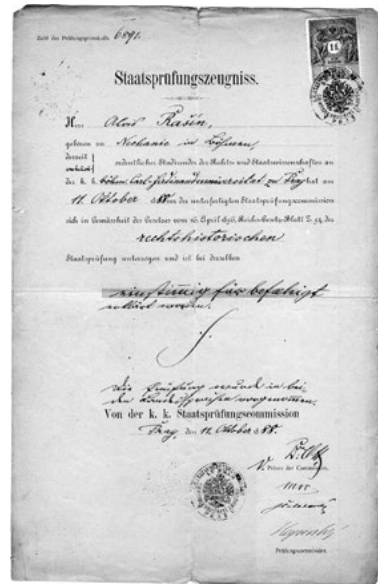 Zahl des Prüfungsprotokolls 6891.
Staatsprüfungszeugniss.
H... Alois Rašín,
geboren zu Nechanic in Böhmen,
derzeit
ordentlicher Studirender der Rechts- und Staatswissenschaften an
der k. k. böhm. Carl-Ferdinandsuniversität zu Prag hat am
12. Oktober 188 vor der unterfertigten Staatsprüfungscommission
sich in Gemässheit des Gesetzes vom 16. April 1856, Reichs-Gesetz-Blatt Z. 54 der
rechtshistorischen
Staatsprüfung unterzogen und ist bei derselben
einstimmig für befähigt
erklärt worden.
Die Prüfung wurde in bei-
den Landessprachen vorgenommen.
Von der k. k. Staatsprüfungscommission
Prag, den 12. Oktober 188
V. Präses der Commission.
Prüfungscommissäre.